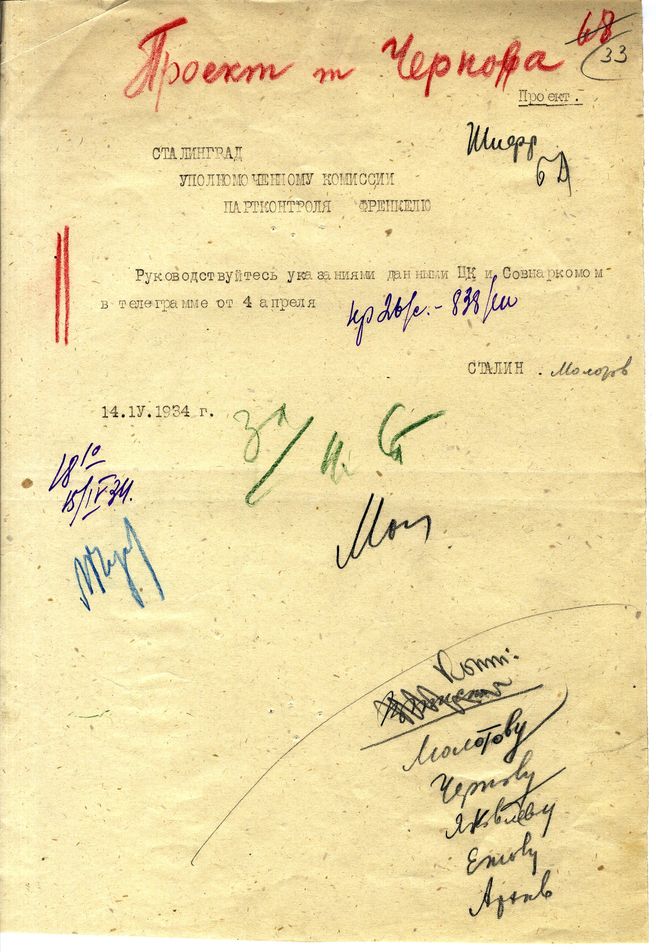 Проект т Чернова
68
33
Проект.
Шифр
СТАЛИНГРАД
УПОЛНОМОЧЕННОМУ КОМИССИИ
ПАРТКОНТРОЛЯ ФРЕНКЕЛЮ
Руководствуйтесь указаниями данными ЦК и Совнаркомом
в телеграмме от 4 апреля
СТАЛИН. Молотов
14.IV.1934 г.
За
И. Ст
18 10
15/IV 34.
Мол
Копи:
Молотову
Чернову
Яковлеву
Ежову
Архив